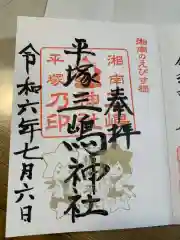 湘南のえびす様
奉拝
湘南
平塚三嶋神社
平塚
平塚乃印
令和六年七月六日